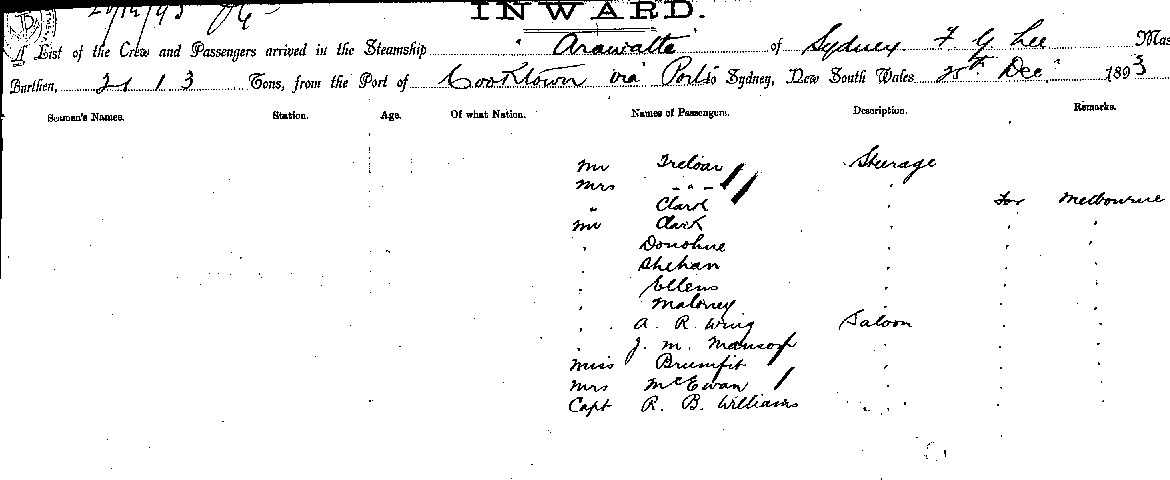 INWARD.
A List of the Crew and Passengers arrived in the Steamship "Arawatta" of Sydney F G Lee Mas
Burthen, 2113 Tons, from the Port of Cooktown via Ports Sydney, New South Wales 25th Dec 1893
Seamen's Names. Station. Age. Of what Nation. Names of Passengers. Description. Remarks.
Mr Treloar Steerage
Mrs - " -
" Clark " for Melbourne
Mr Clark " " "
" Donohue " " "
" Shehan " " "
" Ellens " " "
" Maloney " " "
" A. R. Wing Saloon " "
" J. M. " " "
Miss Brumfit " " "
Mrs McEwan " " "
Capt R. B. Williams " " "